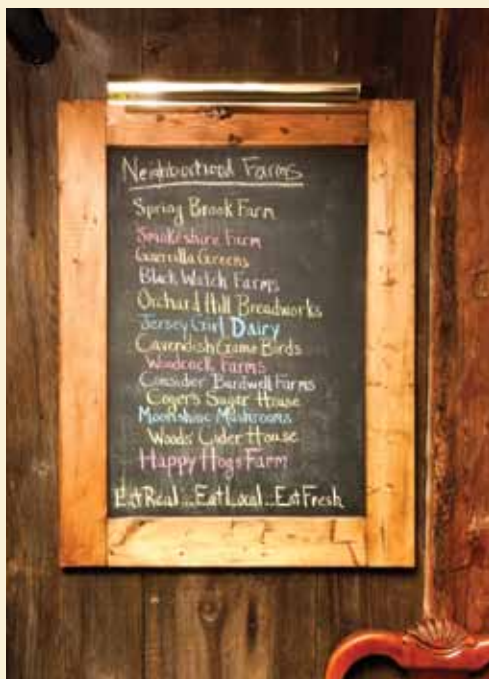 Neighborhood Farms
Spring Brook Farm
Smokeshire Farm
Guerrilla Greens
Black Watch Farms
Orchard Hill Breadworks
Jersey Girl Dairy
Cavendish Game Birds
Woodcock Farms
Consider Bardwell Farms
Coger's Sugar House
Moonshine Mushrooms
Woods' Cider House
Happy Hogs Farm
Eat Real...Eat Local...Eat Fresh